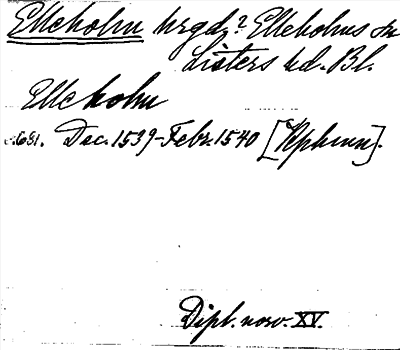 Ellekohn hrgd? Ellekohus sn
Listers hd. Bl.
Ellekohn
s. 681. Dec. 1539-Febr. 1540 [Kphmn].
Dipl. norv. XV.